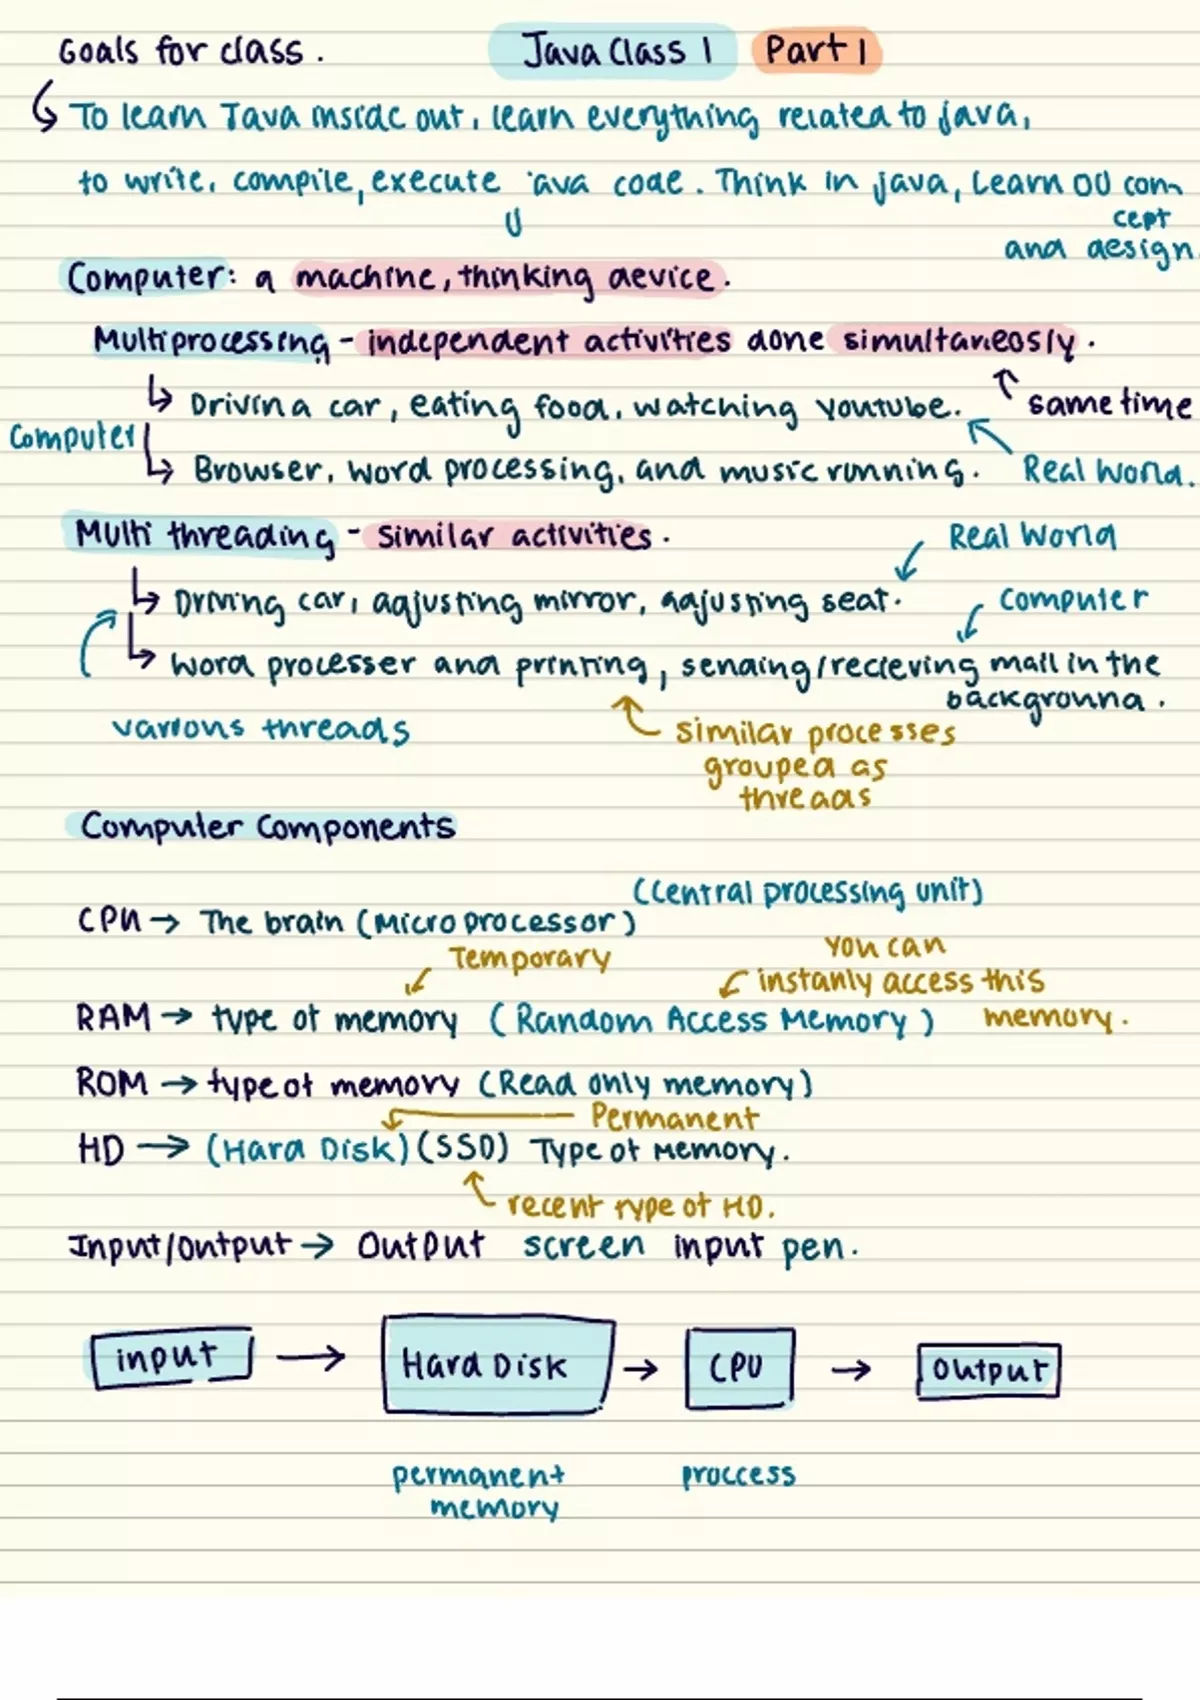 Goals for class. Java Class 1 Part 1
To learn Java inside out, learn everything related to java,
to write, compile, execute java code. Think in java, Learn OO con-
cept
and design.
Computer: a machine, thinking device.
Multiprocessing - independent activities done simultaneosly.
Drivin a car, eating food, watching youtube. same time
Computer
Browser, word processing, and music running. Real World.
Multi threading - similar activities. Real World
Driving car, adjusting mirror, adjusting seat. Computer
word processer and printing, sending/recieving mail in the
background.
various threads
similar processes
grouped as
threads
Computer Components
(Central processing unit)
CPU → The brain (Microprocessor)
Temporary
You can
instanly access this
RAM → type of memory (Random Access Memory) memory.
ROM → type of memory (Read only memory)
Permanent
HD → (Hard Disk) (SSD) Type of Memory.
recent type of HD.
Input/Output → Output screen input pen.
input → Hard Disk → CPU → Output
permanent proccess
memory